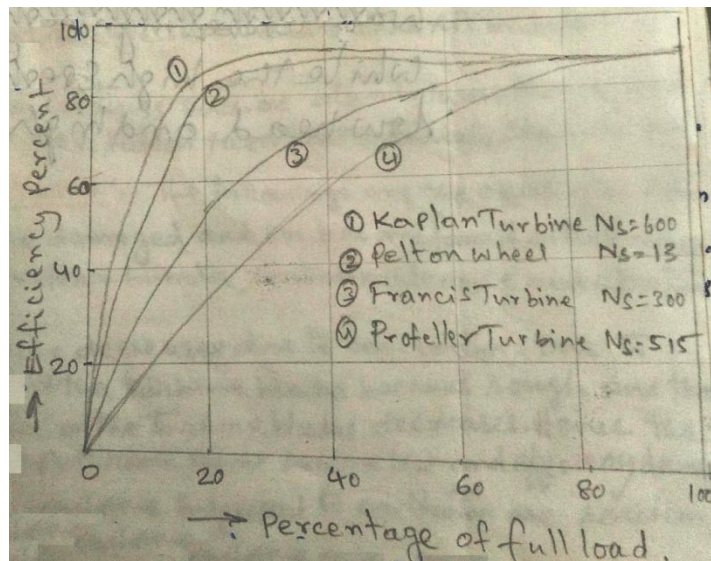 100
80
60
40
20
0
20
40
60
80
100
→ Efficiency Percent
①
②
③
④
① Kaplan Turbine Ns=600
② Pelton wheel Ns=13
③ Francis Turbine Ns=300
④ Profeller Turbine Ns=515
→ Percentage of full load.